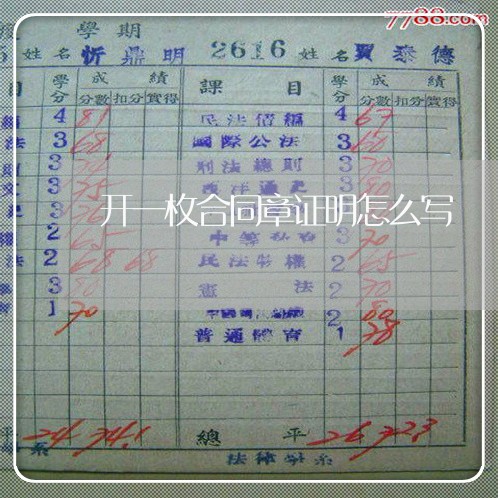 7788.com
學期
5 姓名 忻鼎明 2616 姓名 賈泰德
目 學分 成績 課目 學分 成績
分數 扣分 實得 分數 扣分 實得
4 81 民法債編 4 67
法 3 68 國際公法 3 60
3 刑法總則 3 70
3 75 西洋通史 3 80
開一枚合同章证明怎么写
2 65 3 70
法 2 68 68 民法物權 2 65
3 80 憲法 2 70
1 70 2 80
普通體育 1 78
平 24 74.1 總平 26 72.3
系 法律學系